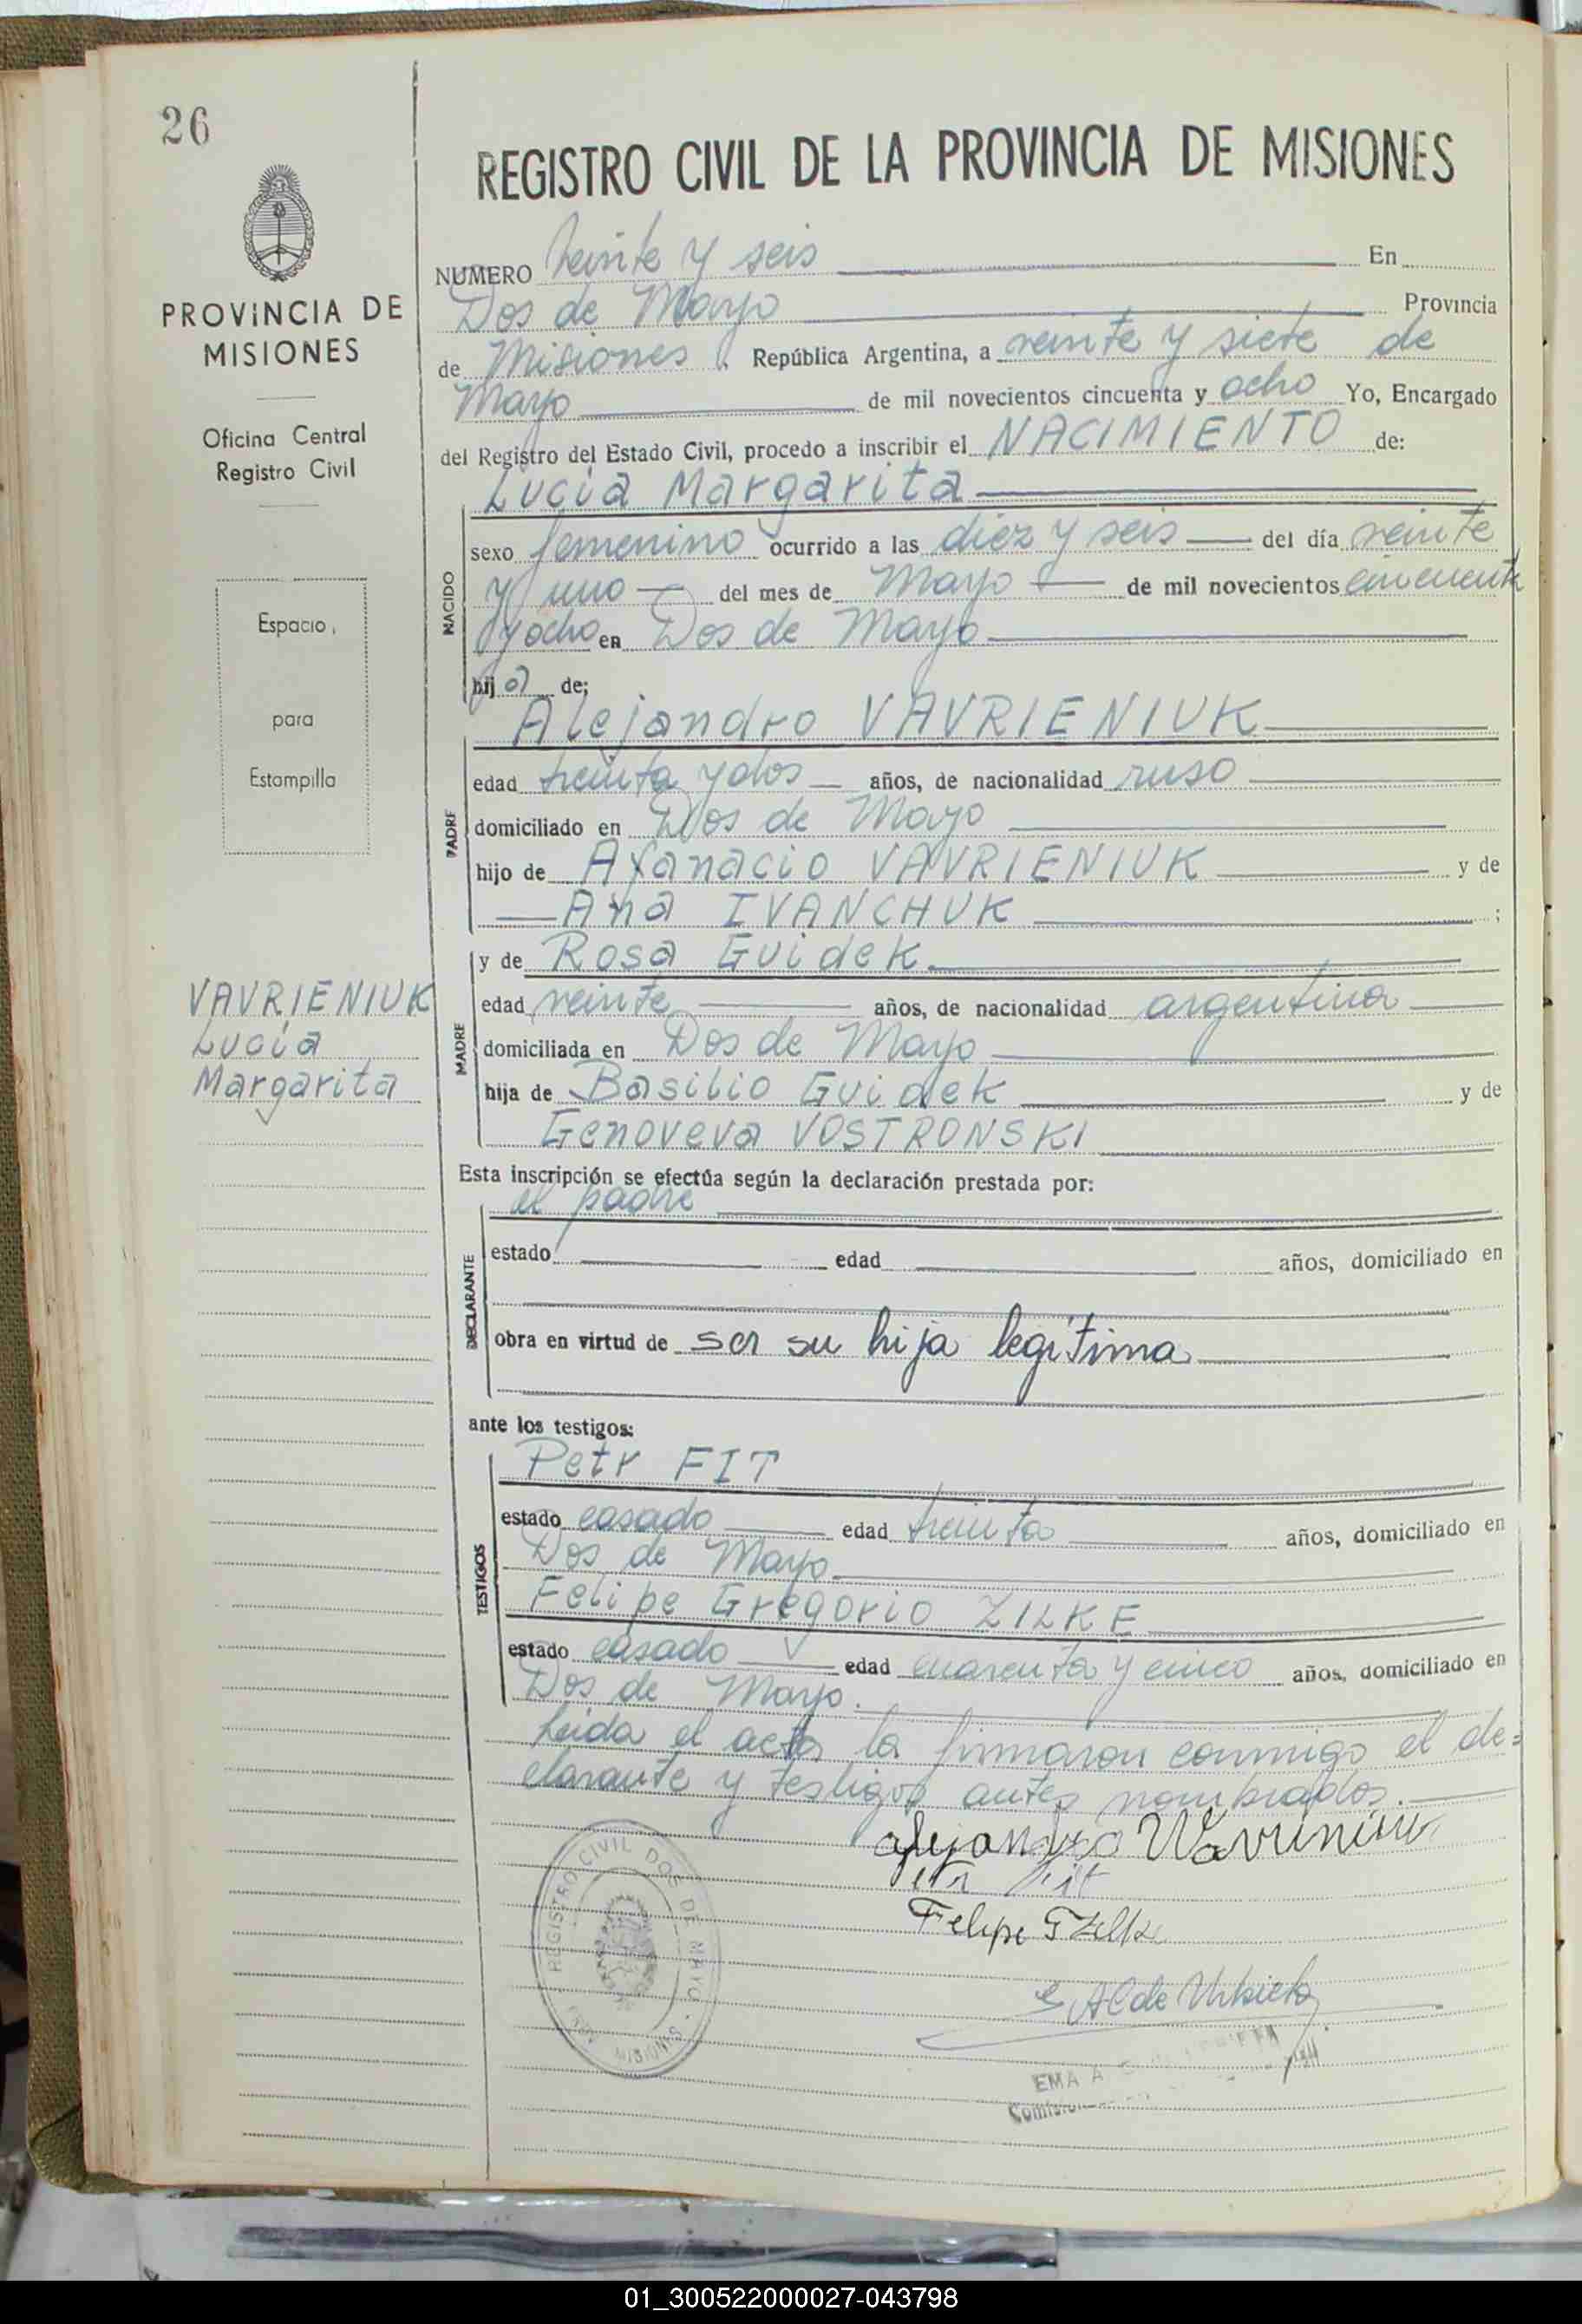 26
PROVINCIA DE
MISIONES
Oficina Central
Registro Civil
Espacio
para
Estampilla
VAVRIENIUK
Lucía
Margarita
REGISTRO CIVIL DE LA PROVINCIA DE MISIONES
NUMERO Veinte y seis En
Dos de Mayo Provincia
de Misiones República Argentina, a veinte y siete de
Mayo de mil novecientos cincuenta y ocho Yo, Encargado
del Registro del Estado Civil, procedo a inscribir el NACIMIENTO de:
Lucía Margarita
NACIDO
sexo femenino ocurrido a las diez y seis del día veinte
y uno del mes de Mayo de mil novecientos cincuenta
y ocho en Dos de Mayo
hija de:
Alejandro VAVRIENIUK
PADRE
edad treinta y dos años, de nacionalidad ruso
domiciliado en Dos de Mayo
hijo de Afanacio VAVRIENIUK y de
Ana IVANCHUK ;
y de Rosa Guidek
MADRE
edad veinte años, de nacionalidad argentina
domiciliada en Dos de Mayo
hija de Basilio Guidek y de
Genoveva VOSTRONSKI
Esta inscripción se efectúa según la declaración prestada por:
el padre
DECLARANTE
estado edad años, domiciliado en
obra en virtud de ser su hija legítima
ante los testigos:
Petr FIT
TESTIGOS
estado casado edad treinta años, domiciliado en
Dos de Mayo
Felipe Gregorio ZILKE
estado casado edad cuarenta y cinco años, domiciliado en
Dos de Mayo.
Leida el acta la firmaron conmigo el de=
clarante y testigos antes nombrados.
Alejandro
Petr Fit
Felipe G Zilke
REGISTRO CIVIL DOS DE MAYO
MISIONES
EMA A
01_300522000027-043798